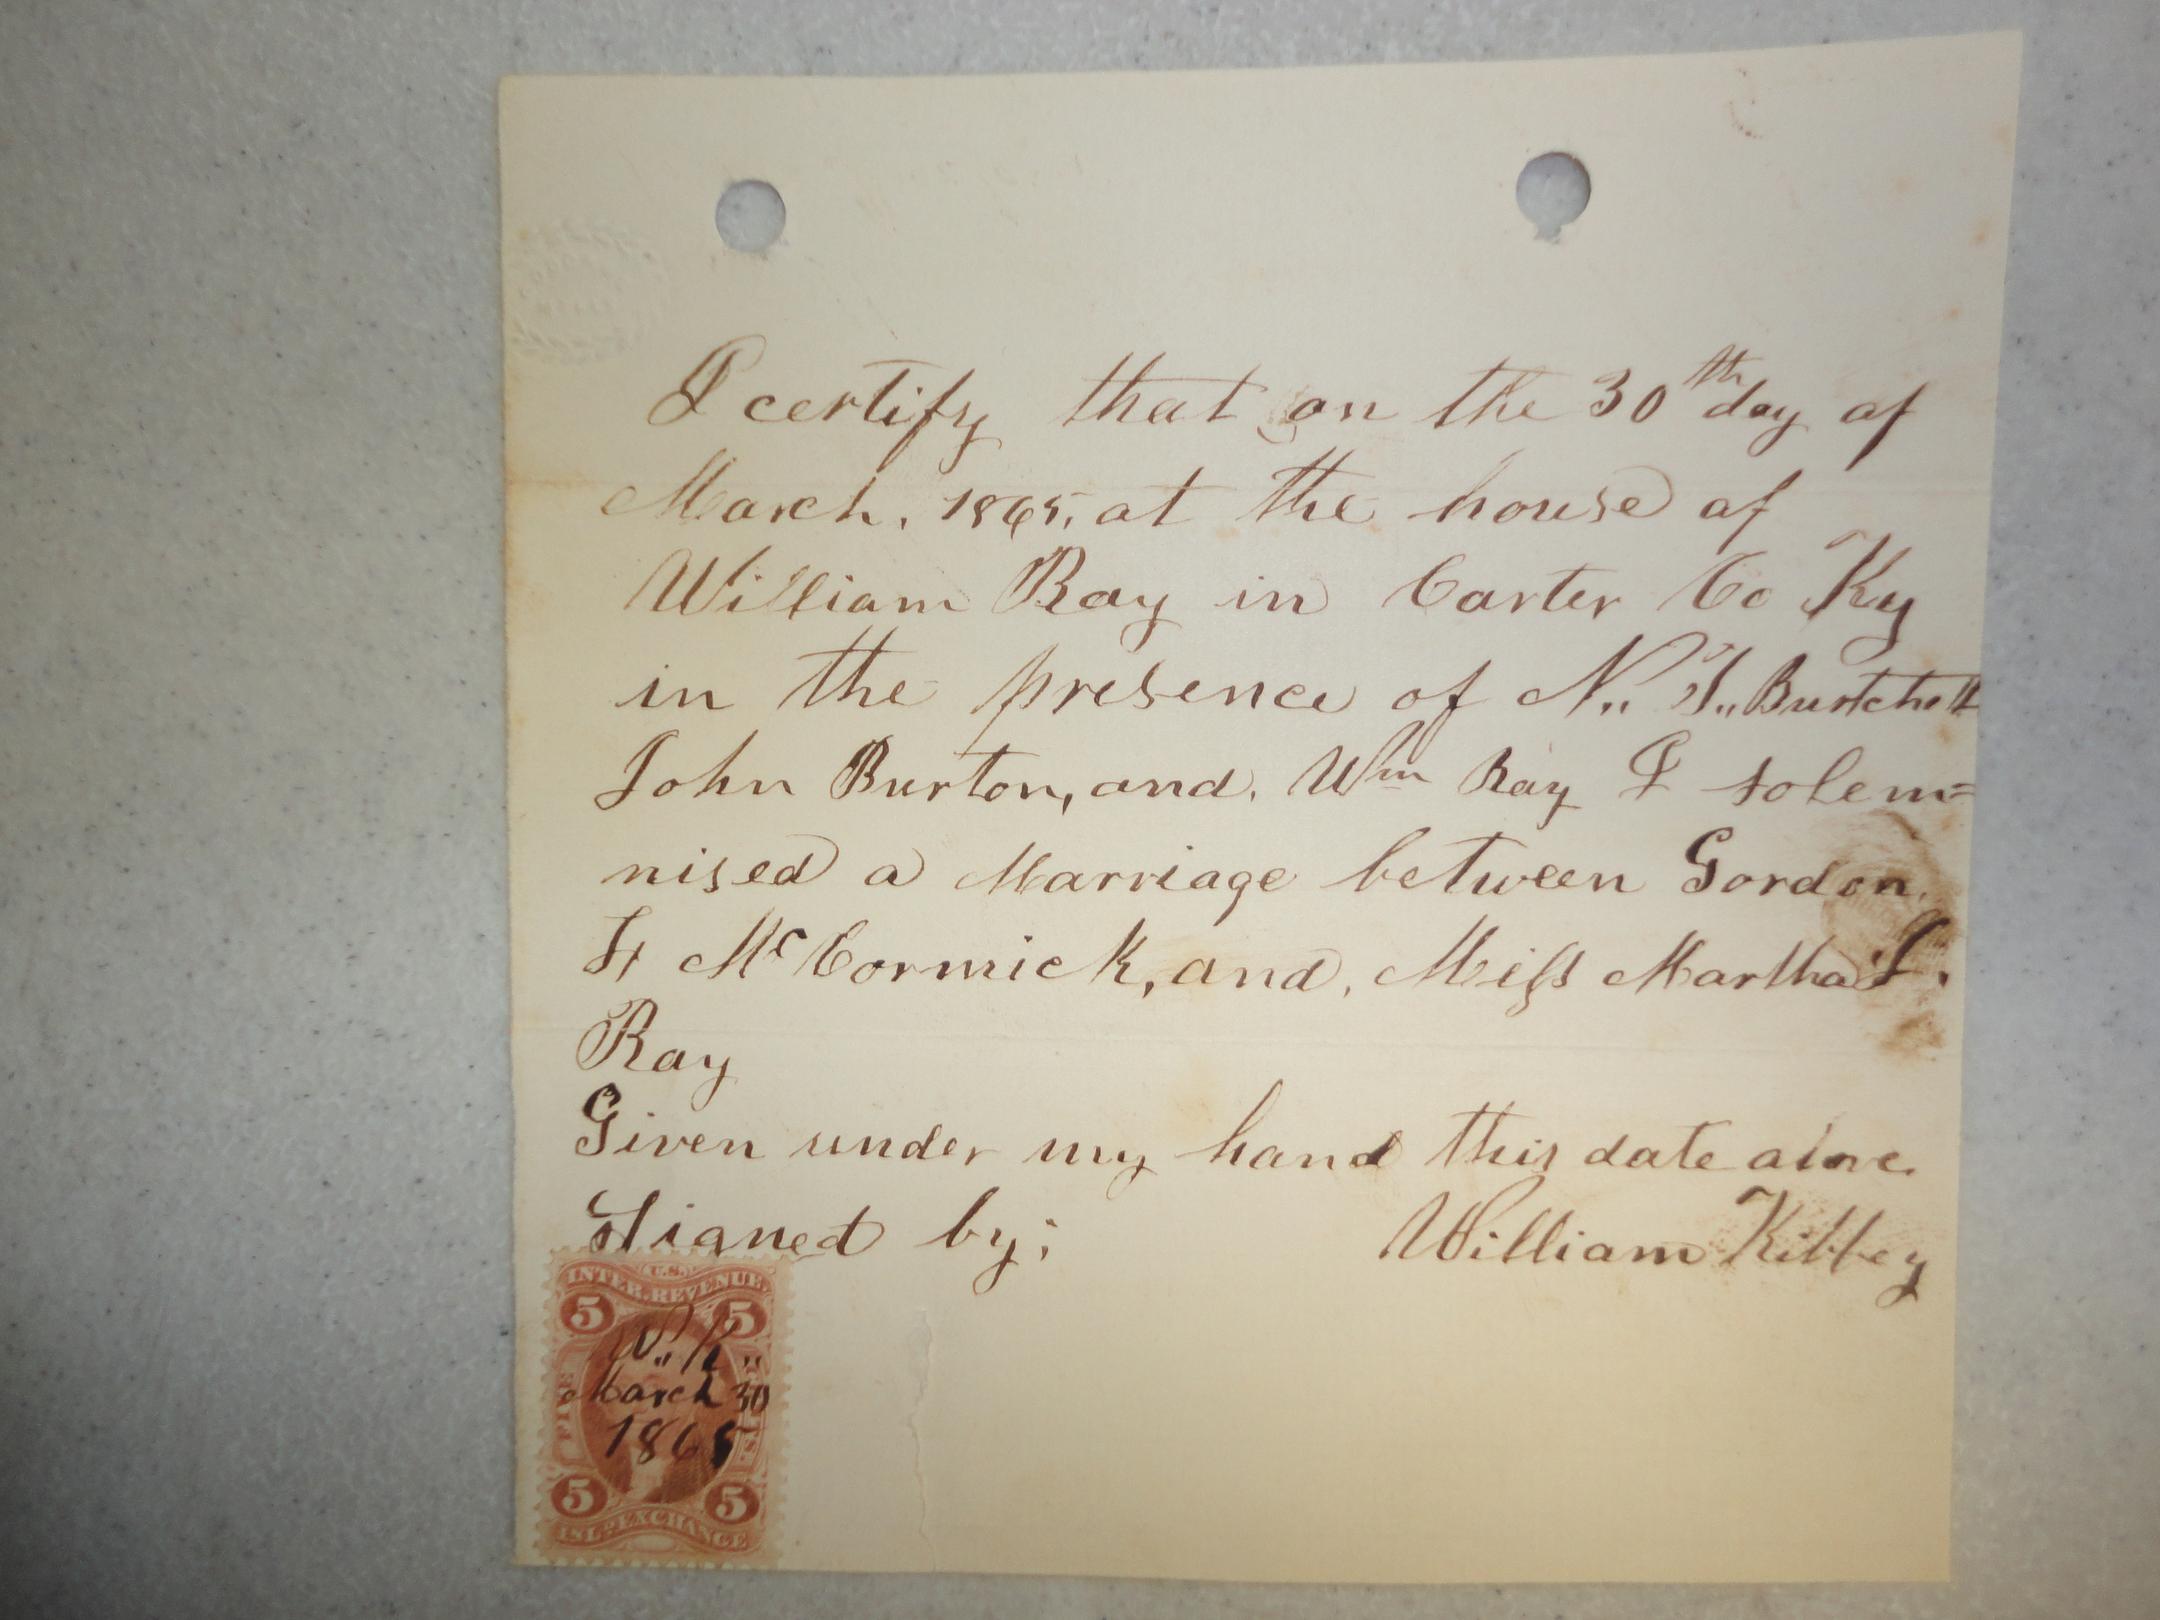 I certify that on the 30th day of
March, 1865, at the house of
William Ray in Carter Co Ky
in the presence of N. Burtchett
John Burton, and. Wm Ray I solem=
nised a Marriage between Gordon.
McCormick, and, Miss Martha
Ray
Given under my hand this date above
Signed by; William Kibbey
U.S.
INTER. REVENUE
5 5
W. K.
March 30
1865
FIVE
5 5
INL. EXCHANGE